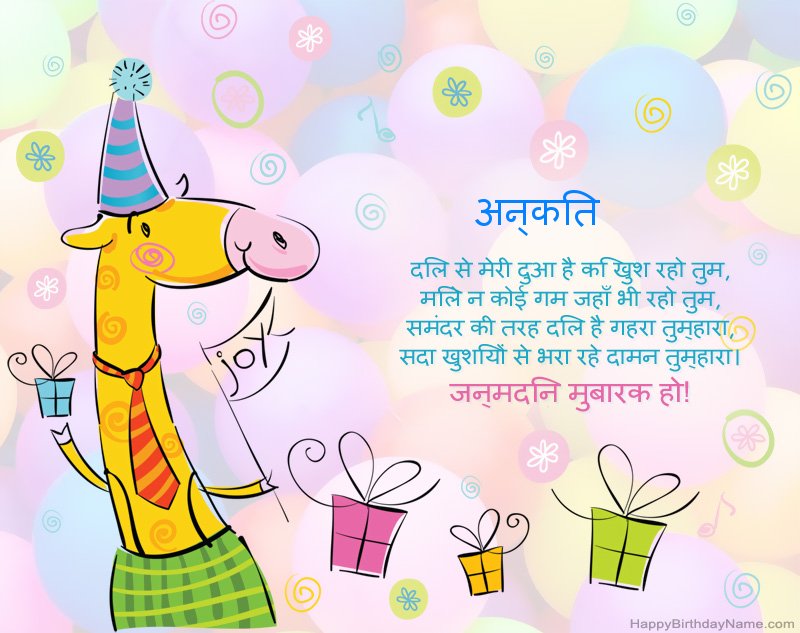 अन्कति
दलि से मेरी दुआ है क खुिश रहो तुम,
मलिे न कोई गम जहाँ भी रहो तुम,
समंदर की तरह दलि है गहरा तुम्हारा,
सदा खुशयिों से भरा रहे दामन तुम्हारा।
जन्मदनि मुबारक हो!
joy
HappyBirthdayName.com